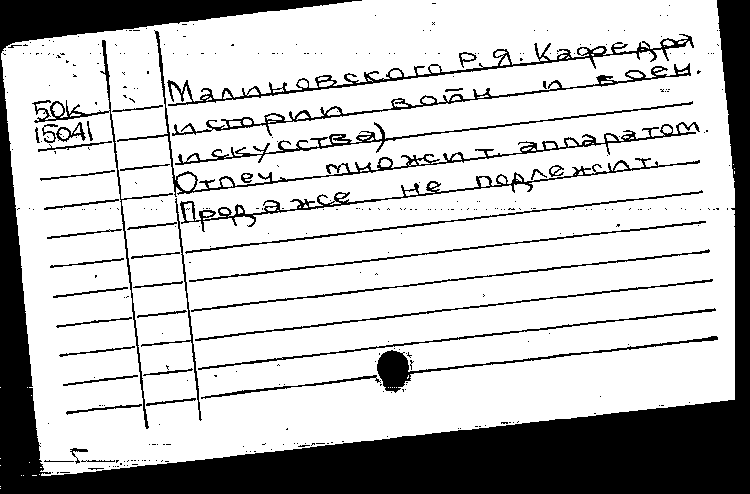 Малиновского Р.Я. Кафедра
50к истории войн и воен.
15041 искусства).
Отпеч. множит. аппаратом.
Продаже не подлежит.